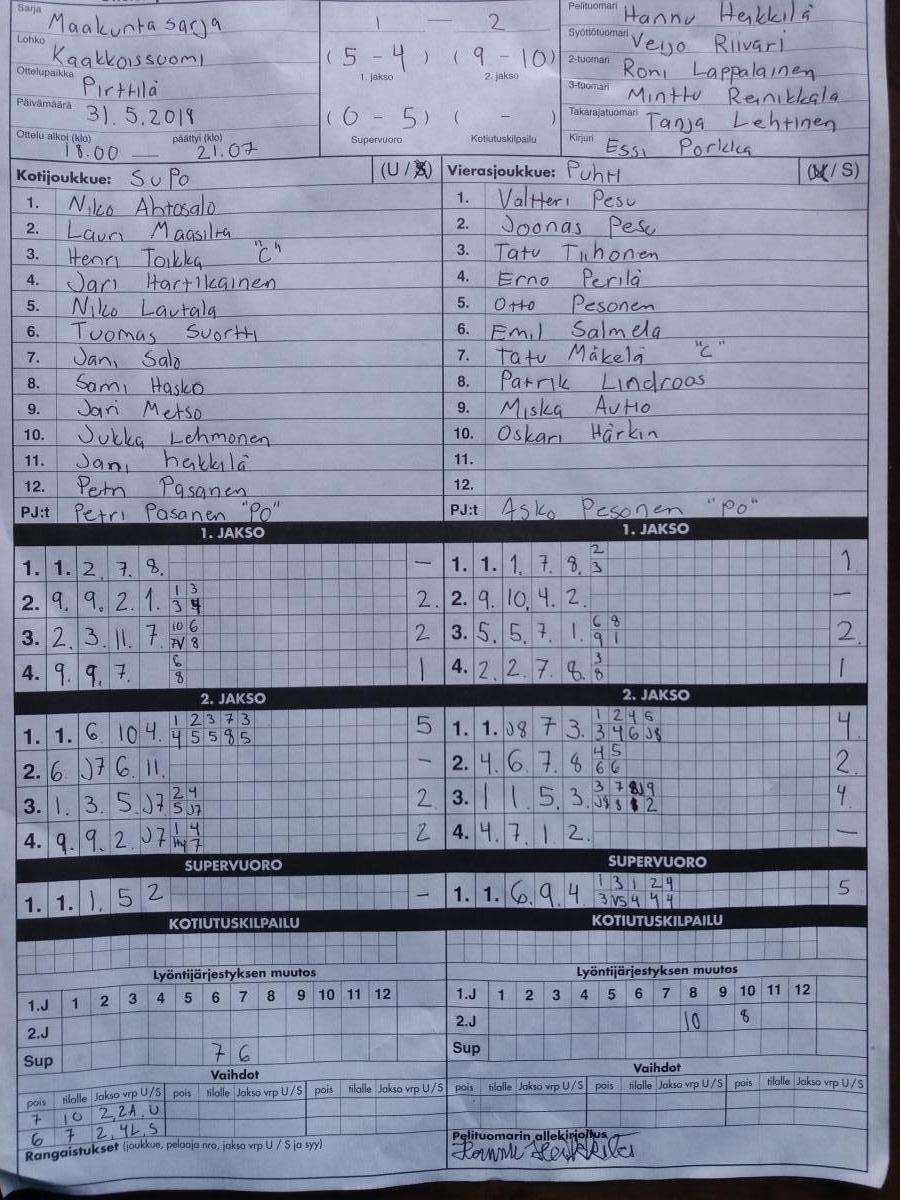 Sarja Maakuntasarja
Lohko Kaakkoissuomi
Ottelupaikka Pirttilä
Päivämäärä 31.5.2019
Ottelu alkoi (klo) päättyi (klo)
18.00 — 21.07
1 — 2
(5 - 4) (9 - 10)
1. jakso 2. jakso
(0 - 5) ( - )
Supervuoro Kotiutuskilpailu
Pelituomari Hannu Heikkilä
Syöttötuomari Veijo Riivari
2-tuomari Roni Lappalainen
3-tuomari Minttu Reinikkala
Takarajatuomari Tanja Lehtinen
Kirjuri Essi Porkka
Kotijoukkue: SuPo (U / S)
1. Niko Ahtosalo
2. Lauri Maasilta
3. Henri Toikka "C"
4. Jari Hartikainen
5. Niko Lautala
6. Tuomas Suortti
7. Jani Salo
8. Sami Hasko
9. Jari Metso
10. Jukka Lehmonen
11. Jani heikkilä
12. Petri Pasanen
PJ:t Petri Pasanen "PO"
Vierasjoukkue: PuhtI (U / S)
1. Valtteri Pesu
2. Joonas Pesu
3. Tatu Tiihonen
4. Erno Perilä
5. Otto Pesonen
6. Emil Salmela
7. Tatu Mäkelä "C"
8. Patrik Lindroos
9. Miska Autio
10. Oskari Härkin
11.
12.
PJ:t Asko Pesonen "PO"
1. JAKSO
1. 1. 2. 7. 8. —
2. 9. 9. 2. 1. 1 3 2.
3 4
3. 2. 3. 11. 7. 10 6 2
7V 8
4. 9. 9. 7. 6 1
8
1. JAKSO
1. 1. 1. 7. 8. 2 1
3
2. 9. 10. 4. 2. —
3. 5. 5. 7. 1. 6 8 2.
9 1
4. 2. 2. 7. 8. 3 1
8
2. JAKSO
1. 1. 6. 10 4. 1 2 3 7 3 5
4 5 5 8 5
2. 6. J7 6. 11. —
3. 1. 3. 5. J7 2 4 2
5 J7
4. 9. 9. 2. J7 1 4 2
7
2. JAKSO
1. 1. J8 7 3. 1 2 4 6 4
3 4 6 J8
2. 4. 6. 7. 8 4 5 2.
6 6
3. 1 1 5. 3. 3 7 8 J9 4.
J8 8 2
4. 4. 7. 1. 2. —
SUPERVUORO
1. 1. 1. 5 2 —
SUPERVUORO
1. 1. 6. 9. 4. 1 3 1 2 4 5
3 V5 4 4 4
KOTIUTUSKILPAILU
KOTIUTUSKILPAILU
Lyöntijärjestyksen muutos
1.J 1 2 3 4 5 6 7 8 9 10 11 12
2.J
Sup 7 6
Lyöntijärjestyksen muutos
1.J 1 2 3 4 5 6 7 8 9 10 11 12
2.J 10 8
Sup
Vaihdot
pois tilalle Jakso vrp U/S pois tilalle Jakso vrp U/S pois tilalle Jakso vrp U/S
7 10 2,2A,U
6 7 2,4L,S
Rangaistukset (joukkue, pelaaja nro, jakso vrp U / S ja syy)
Vaihdot
pois tilalle Jakso vrp U/S pois tilalle Jakso vrp U/S pois tilalle Jakso vrp U/S
Pelituomarin allekirjoitus
Hannu Heikkilä